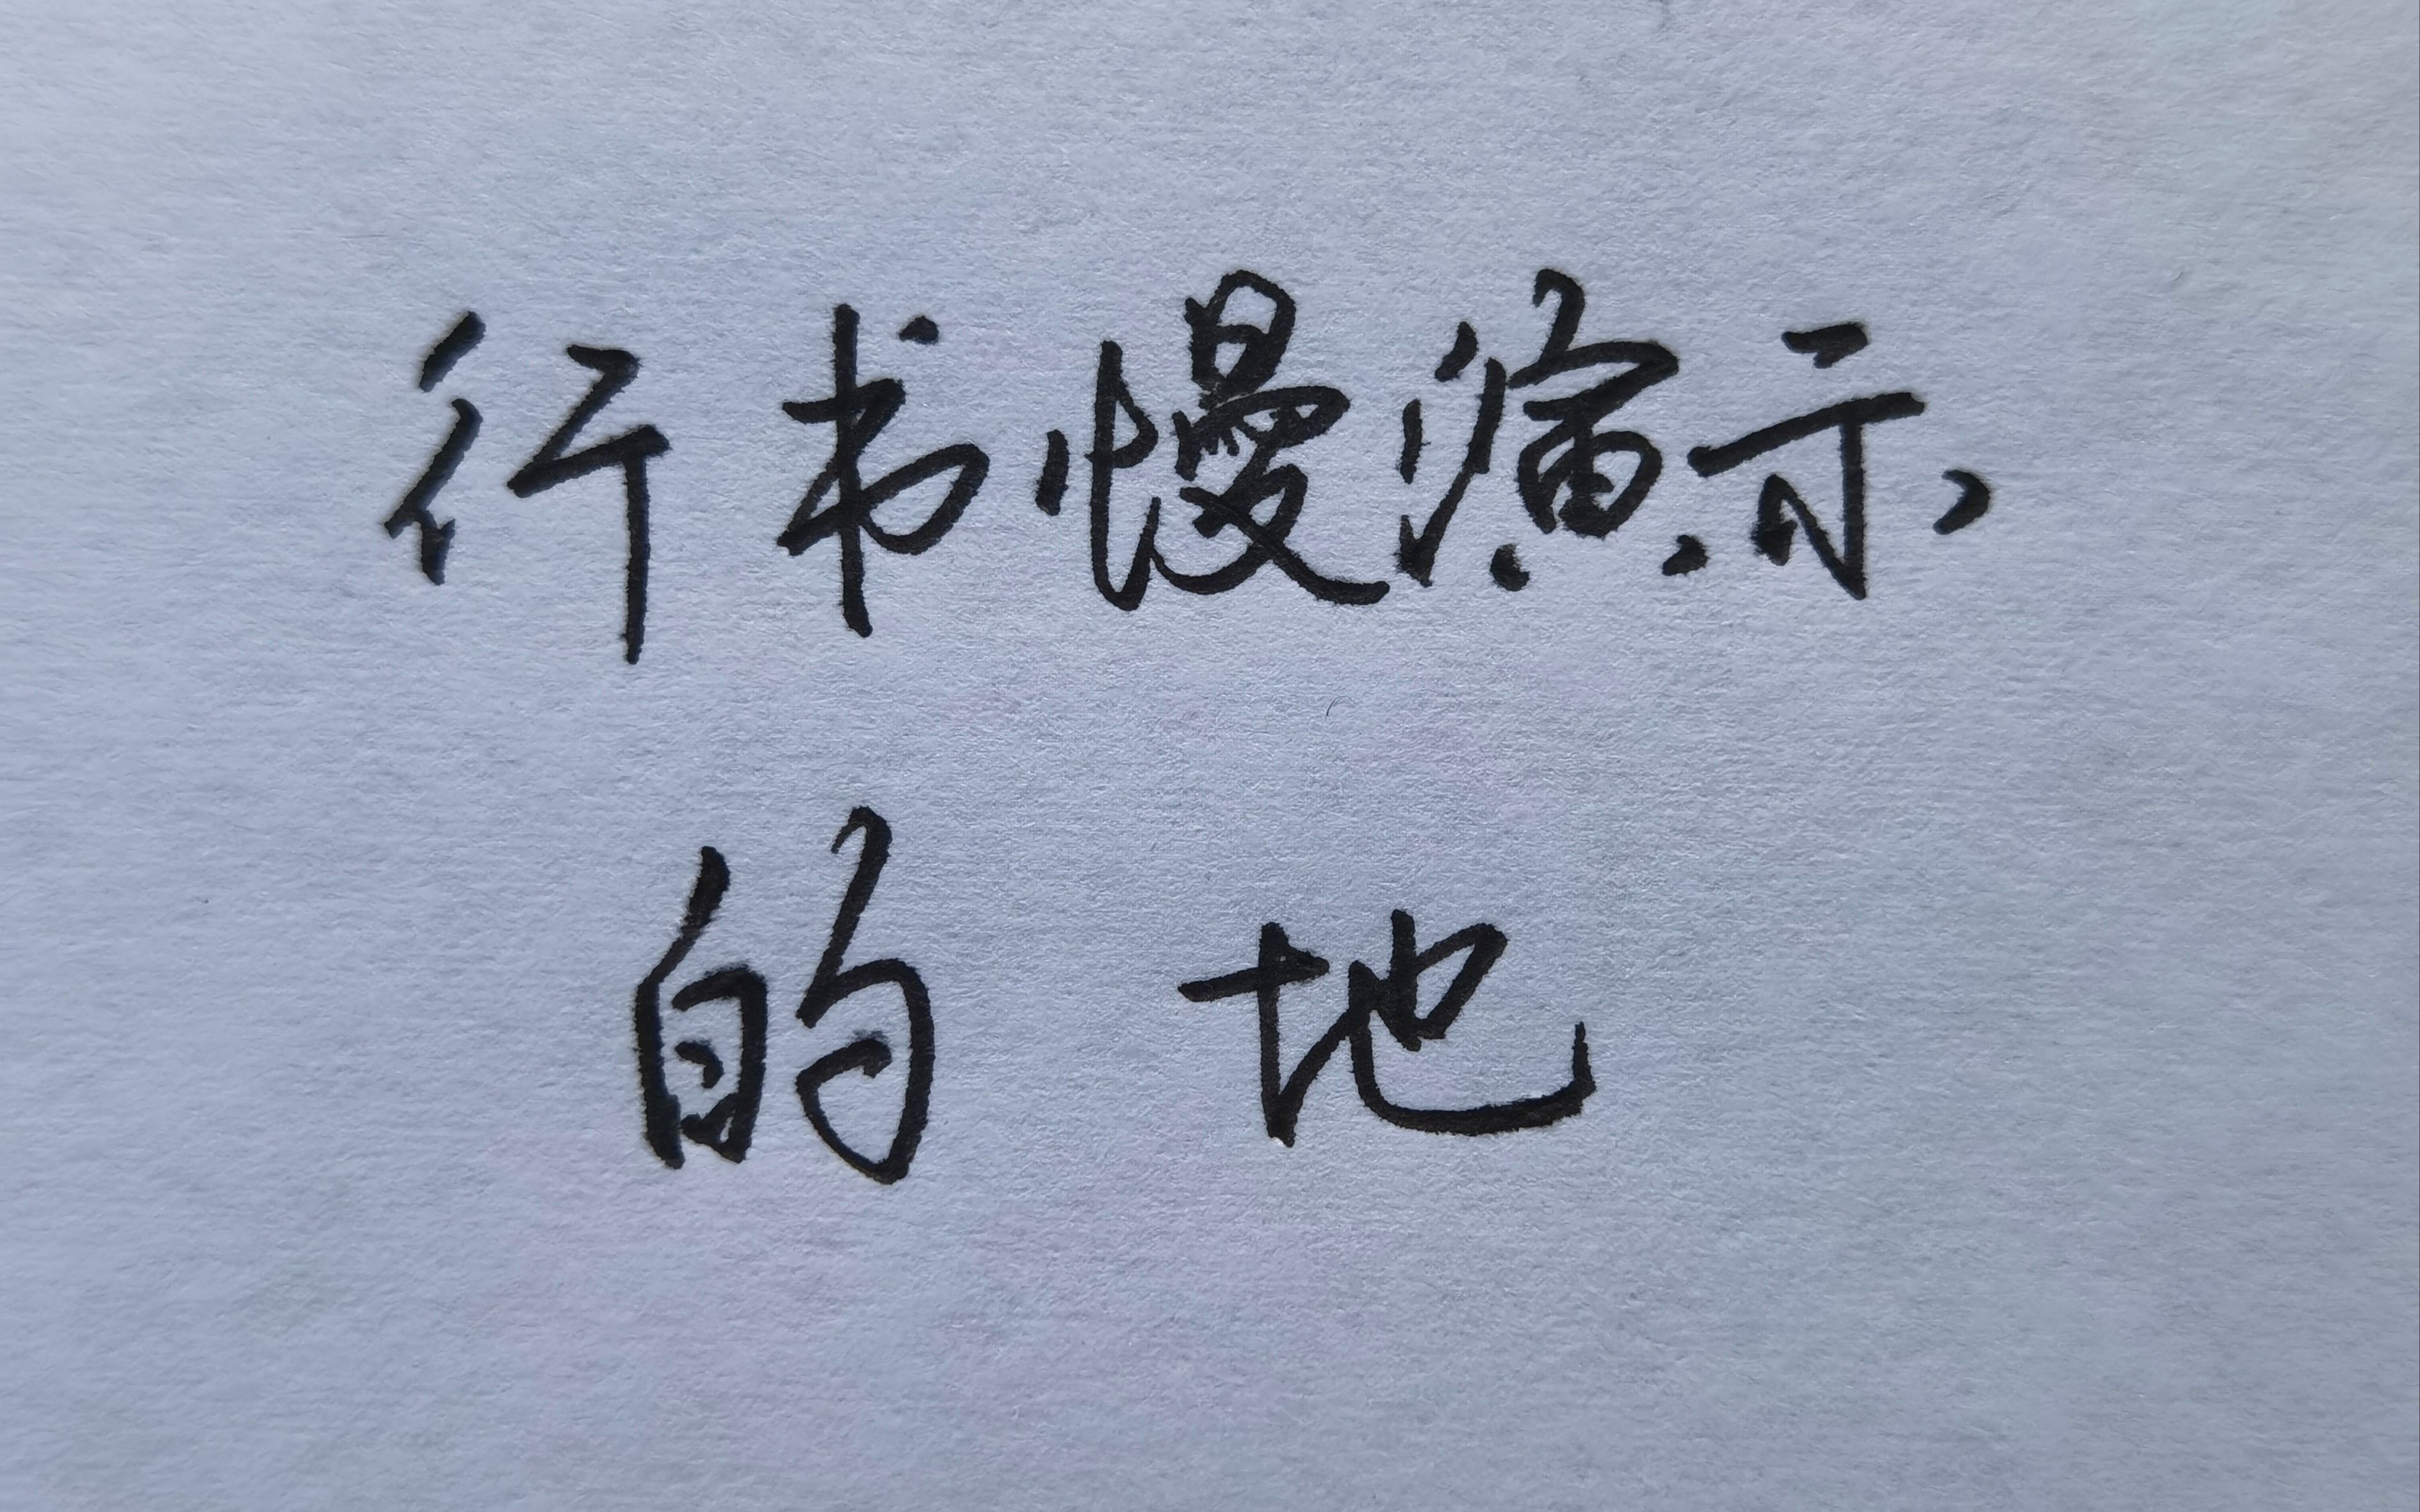 行书慢演示
的 地